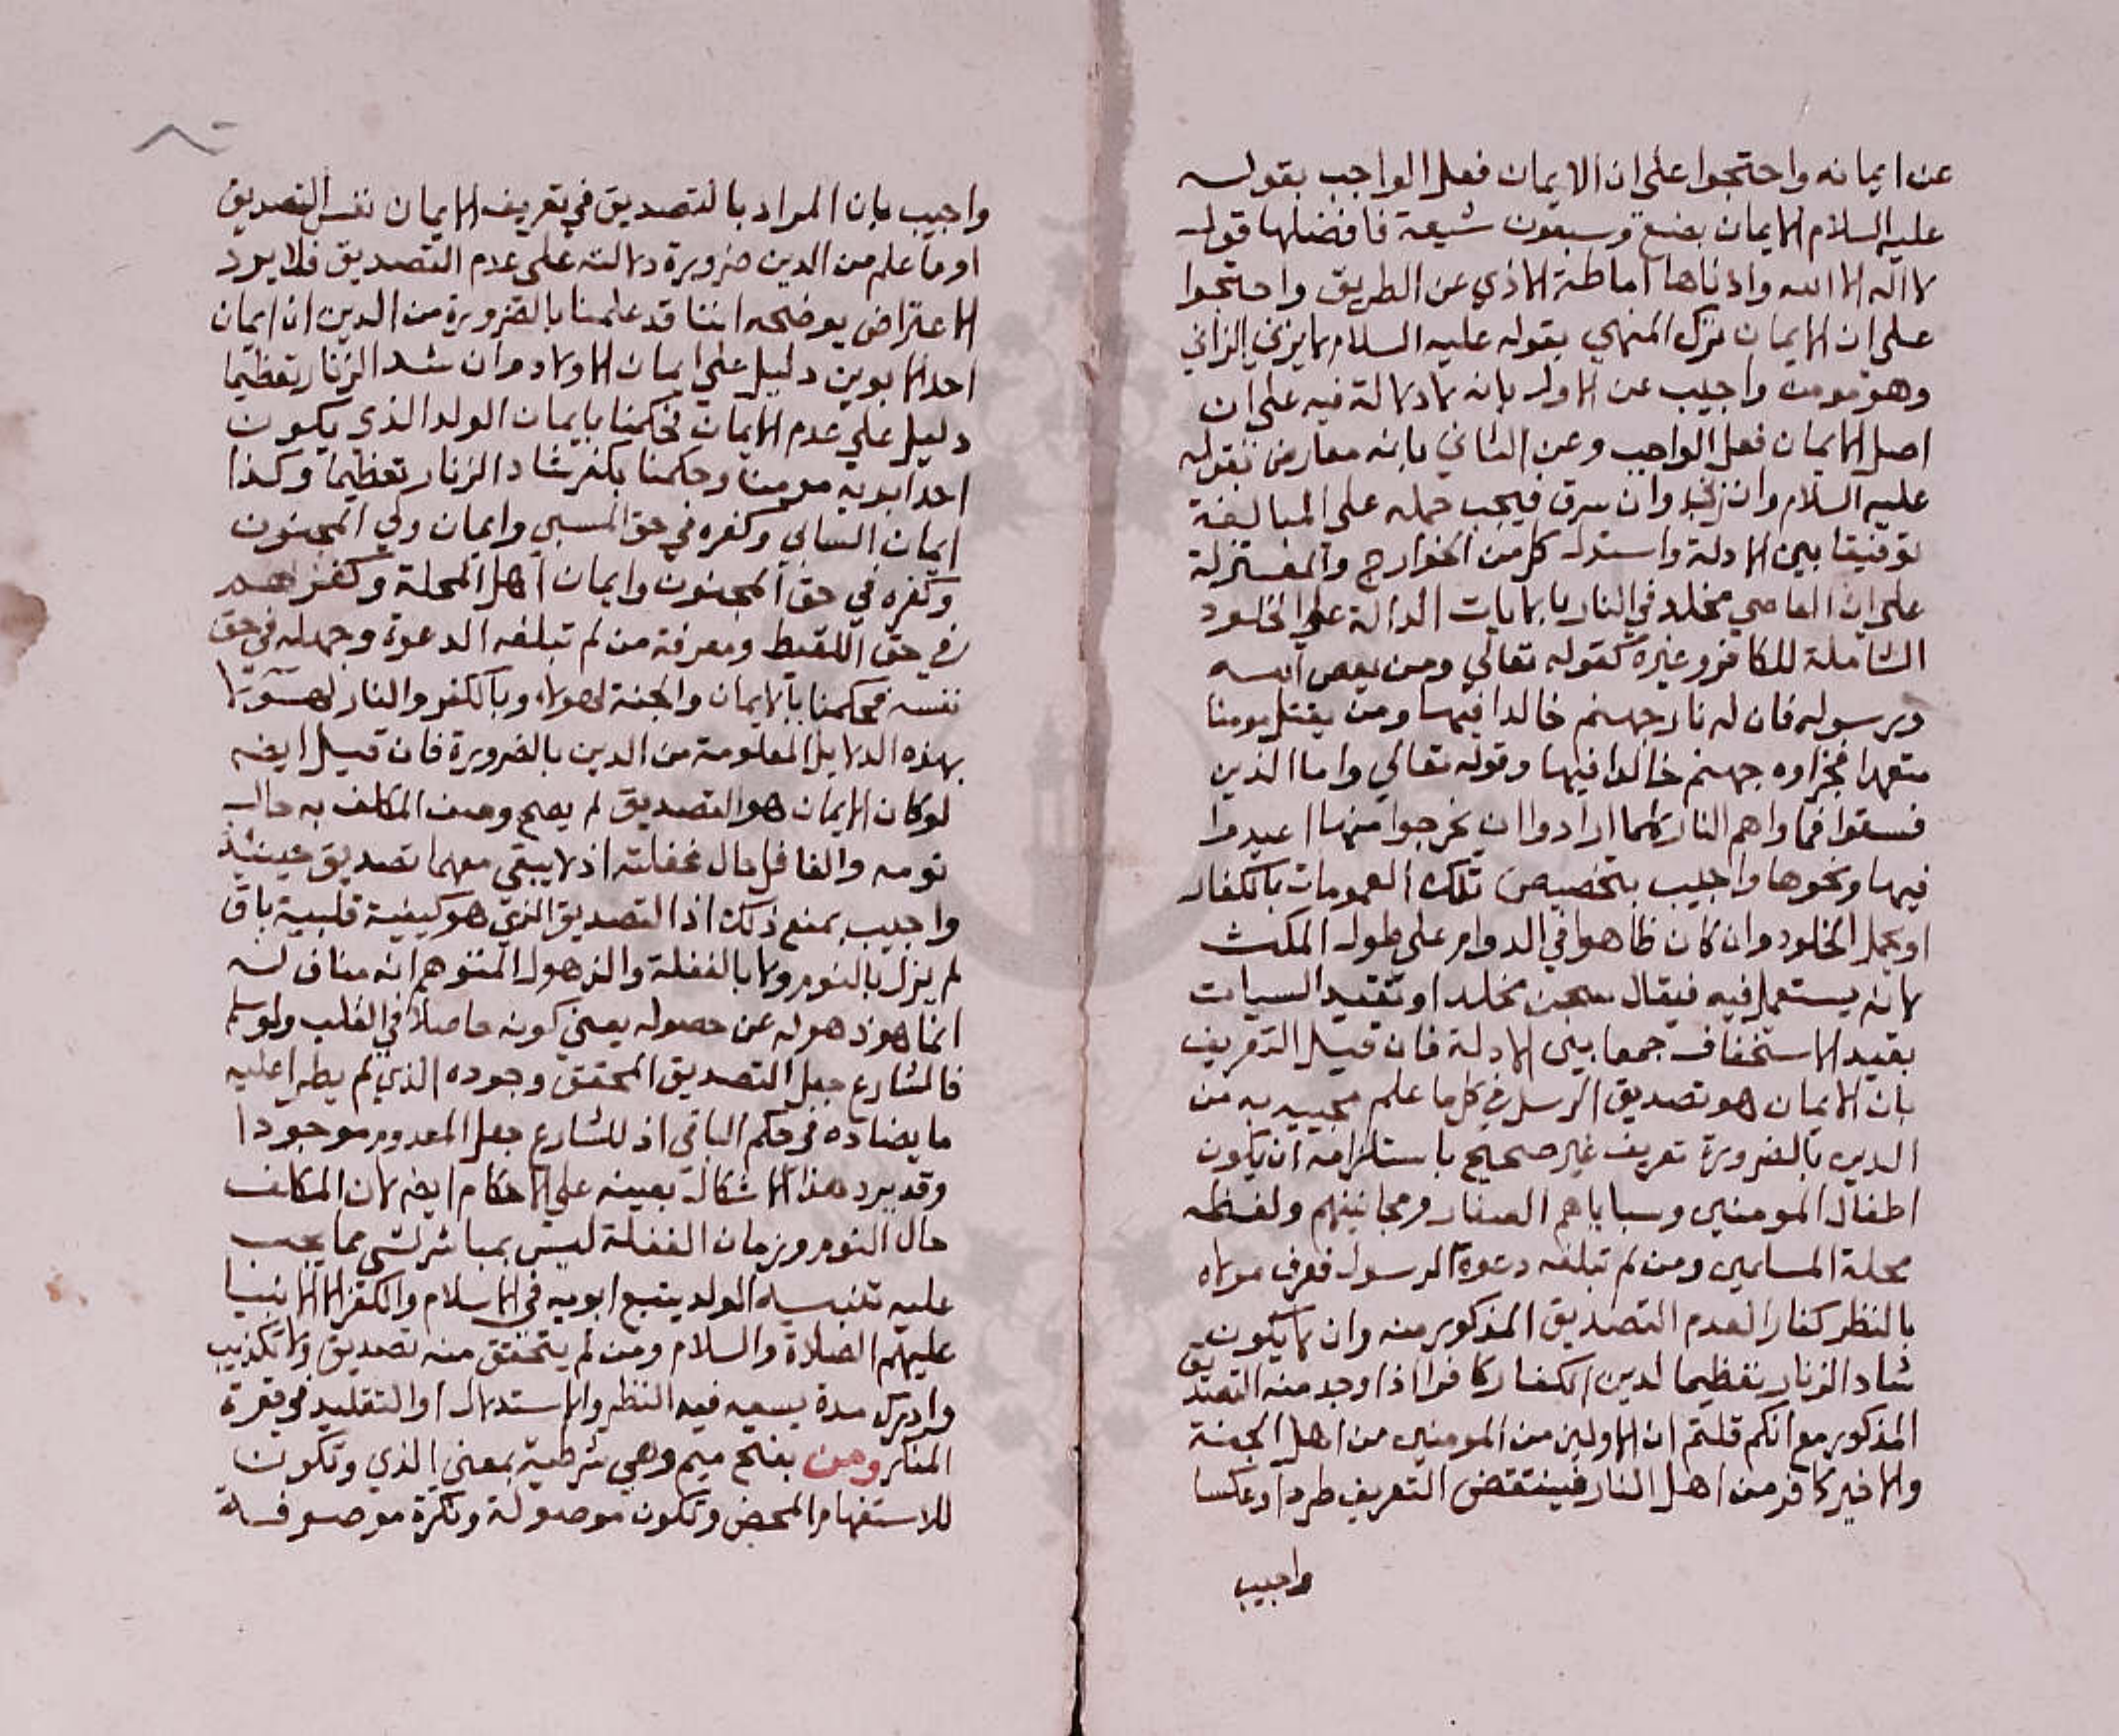 عن ايمانه واحتجوا على ان الايمان فعل الواجب بقوله
عليه السلام الايمان بضع وسبعون شيعة فافضلها قول
لا اله الا الله وادناها اماطة الاذي عن الطريق واحتجوا
على ان الايمان ترك المنهي بقوله عليه السلام لا يزني الزاني
وهو مومن واجيب عن الاول بانه لا دلالة فيه على ان
اصل الايمان فعل الواجب وعن الثاني بانه معارض بقوله
عليه السلام وان زنى وان سرق فيجب حمله على المبالغة
توفيقا بين الادلة واستدل كل من الخوارج والمعتزلة
على ان العاصي مخلد في النار بالايات الدالة على الخلود
الشاملة للكافر وغيره كقوله تعالي ومن يعص الله
ورسوله فان له نار جهنم خالدا فيها ومن يقتل مومنا
متعمدا فجزاوه جهنم خالدا فيها وقوله تعالي واما الذين
فسقوا فماواهم النار كلما ارادوا ان يخرجوا منها اعيدوا
فيها ونحوها واجيب بتخصيص تلك العمومات بالكفار
او يحمل الخلود وان كان ظاهرا في الدوام على طول المكث
لانه يستعمل فيه فيقال سجن مخلد او تقيد السيات
بقيد الاستخفاف جمعا بين الادلة فان قيل التعريف
بان الايمان هو تصديق الرسل في كل ما علم مجييه به من
الدين بالضرورة تعريف غير صحيح باستلزامه ان يكون
اطفال المومنين وسباياهم الصغار ومجانينهم ولقطه
محلة المسلمين ومن لم تبلغه دعوة الرسول فعرف مولاه
بالنظر كفارا لعدم التصديق المذكور منه وان لا يكون
شاد الزنار تعظيما لدين الكفار كافرا اذا وجد منه التصديق
المذكور مع انكم قلتم ان الاولين من المومنين من اهل الجنة
والاخير كافر من اهل النار فينتقض التعريف طردا وعكسا
واجيب
واجيب بان المراد بالتصديق في تعريف الايمان نفس التصديق
او ما علم من الدين ضرورة دلالته على عدم التصديق فلا يرد
الاعتراض يوضحه اننا قد علمنا بالضرورة من الدين ان ايمان
احد الابوين دليل على ايمان الاولاد وان شد الزنار تعظيما
دليل على عدم الايمان فحكمنا بايمان الولد الذي يكون
احد ابويه مومنا وحكمنا بكفر شاد الزنار تعظيما وكذا
ايمان السابي وكفره في حق المسبي وايمان ولي المجنون
وكفره في حق المجنون وايمان اهل المحلة وكفرهم
في حق اللقيط ومعرفة من لم تبلغه الدعوة وجهله في حق
نفسه فحكمنا بالايمان والجنة لهولاء وبالكفر والنار لهولا
بهذه الدلايل المعلومة من الدين بالضرورة فان قيل ايضه
لو كان الايمان هو التصديق لم يصح وصف المكلف به حال
نومه والغافل حال غفلته اذ لا يبقى معهما تصديق حينئذ
واجيب بمنع ذلك اذ التصديق الذي هو كيفية قلبية باق
لم يزل بالنوم ولا بالغفلة والذهول المتوهم انه مناف له
انما هو ذهوله عن حصوله يعني كونه حاصلا في القلب ولو سلم
فالشارع جعل التصديق المحقق وجوده الذي لم يطرا عليه
ما يضاده في حكم الباقي اذ للشارع جعل المعدوم موجودا
وقد يرد هذا الاشكال بعينه على الاحكام ايضه لان المكلف
حال النوم وزمان الغفلة ليس بمباشر لشي مما يجب
عليه تنبيه الولد يتبع ابويه في الاسلام والكفر الا الانبيا
عليهم الصلاة والسلام ومن لم يتحقق منه تصديق ولا تكذيب
وادرك مدة يسعه فيه النظر والاستدلال او التقليد في قوة
المنكر ومن بفتح ميم وهي شرطية بمعني الذي وتكون
للاستفهام المحض وتكون موصولة ونكرة موصوفة